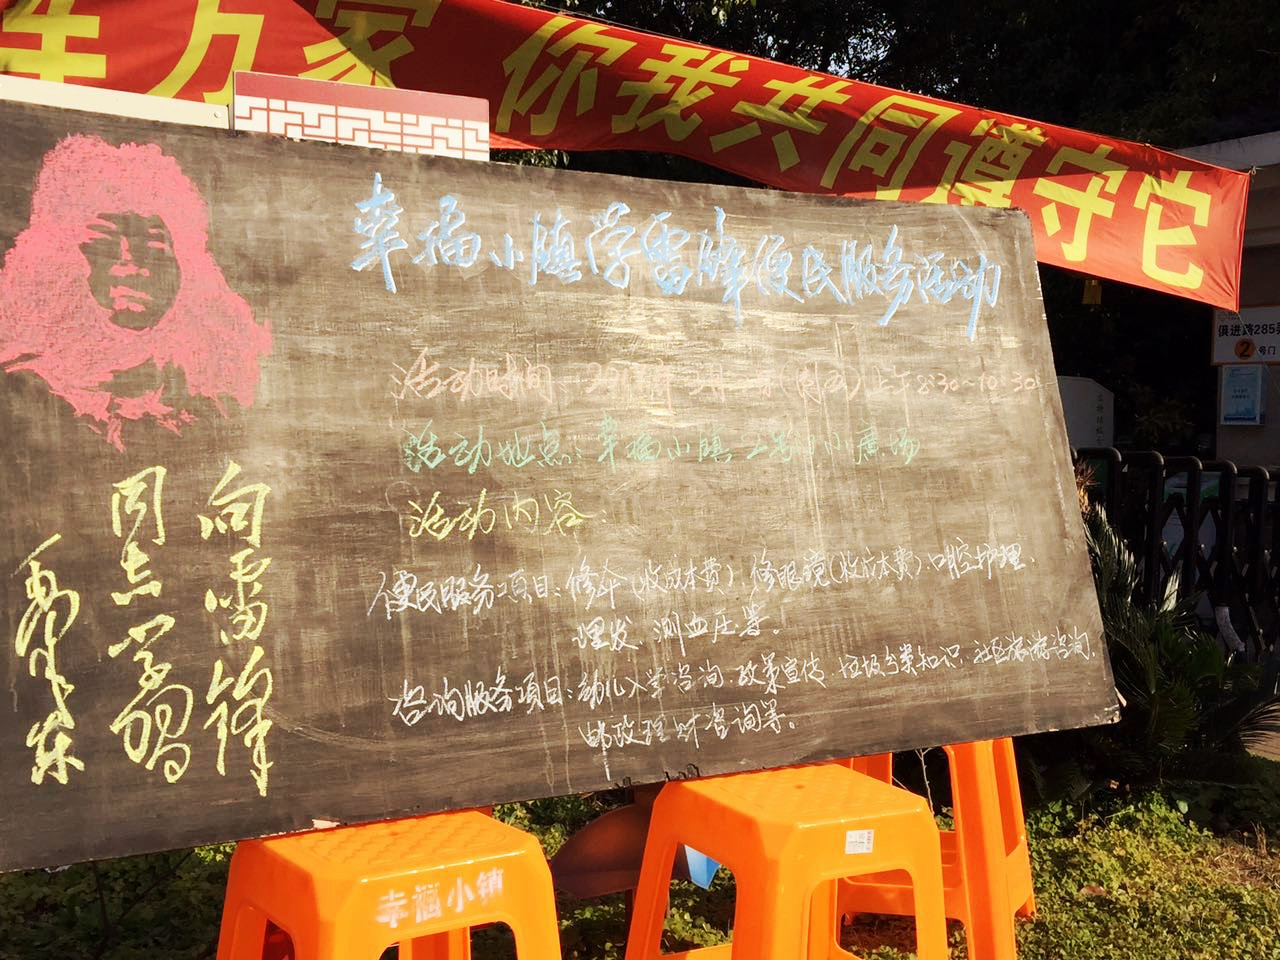 万家 你我共同遵守它
幸福小镇学雷锋便民服务活动
活动时间：2019年3月 (周五) 上午8:30~10:30
活动地点：幸福小镇2号门小廣场
活动内容：
便民服务项目：修伞(收成本费)、修眼镜(收成本费)、口腔护理、
理发、测血压等。
咨询服务项目：幼儿入学咨询、政策宣传、垃圾分类知识、社区旅游咨询、
邮政理财咨询等。
向雷锋
同志学习
毛泽东
俱进路285弄
2号门
幸福小镇